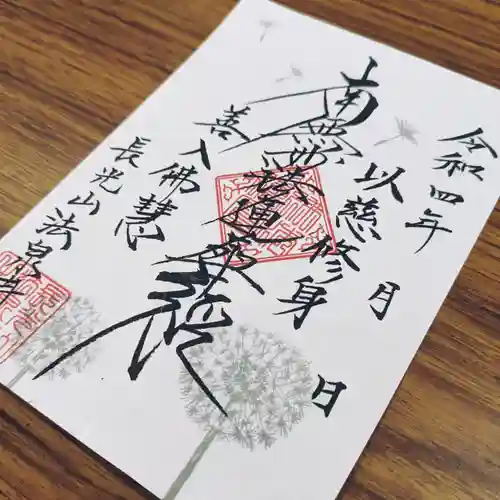 令和四年 月 日
以慈修身
南無妙法蓮華経
善入佛慧
長光山 法泉寺